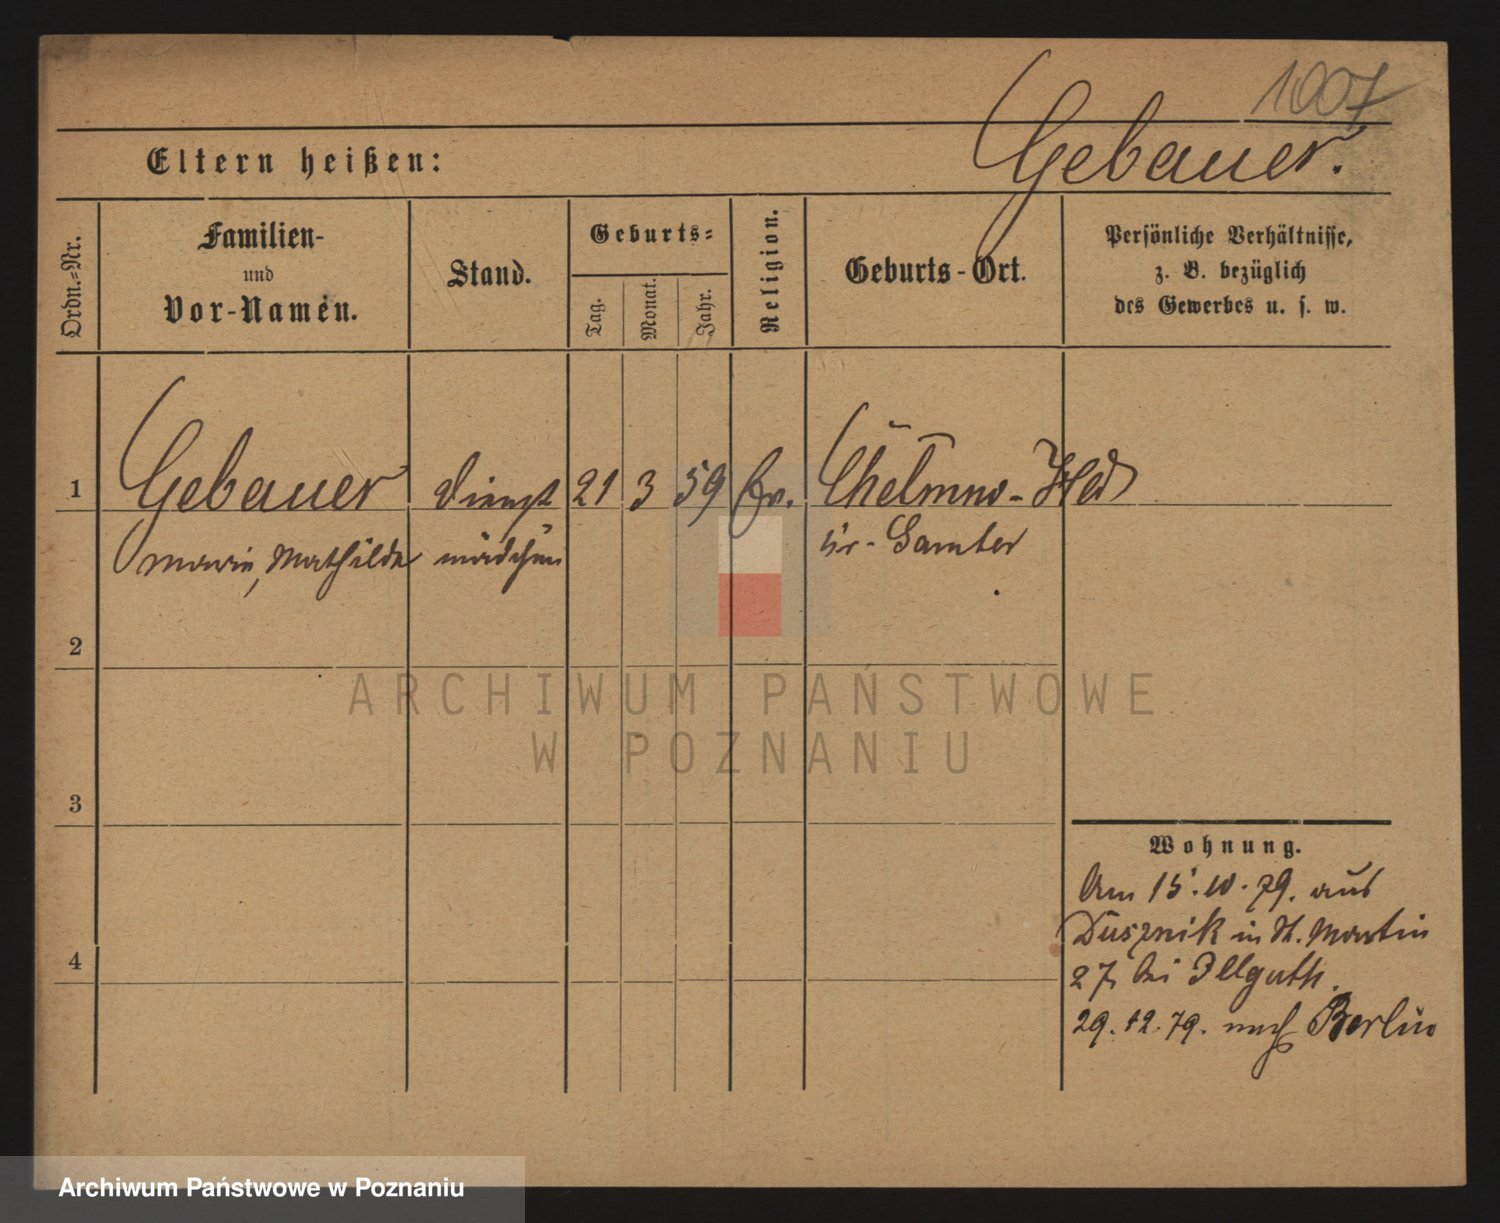 1007
Gebauer.
Eltern heißen:
Ordn.-Nr.
Familien-
und
Vor-Namen.
Stand.
Geburts-
Tag.
Monat.
Jahr.
Religion.
Geburts-Ort.
Persönliche Verhältnisse,
z. B. bezüglich
des Gewerbes u. s. w.
1 Gebauer Dienst 21 3 59 Ev. Chelmno-
Marie, Mathilde mädchen Kr. Samter
2
3
4
ARCHIWUM PAŃSTWOWE
W POZNANIU
Wohnung.
Am 15. 10. 79. aus
Dusznik in St. Martin
27 bei Illguth.
29. 12. 79. nach Berlin
Archiwum Państwowe w Poznaniu